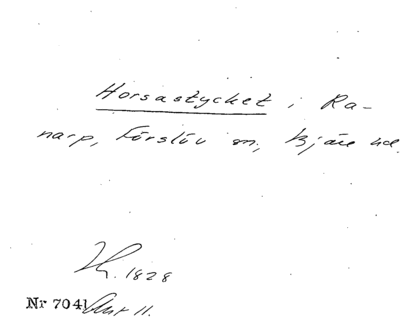 Horsastycket i Ra-
narp, Förslöv sn, Bjäre hd.
1828
Nr 7041 Akt 11.